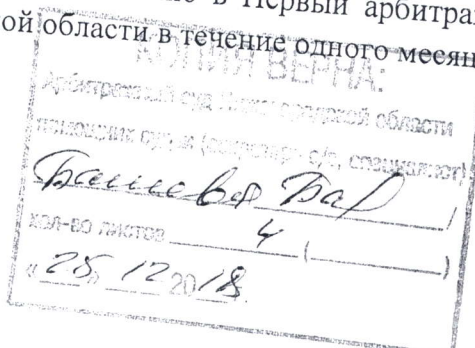 в Первый арбитра
ой области в течение одного месян
КОПИЯ ВЕРНА:
Арбитражный суд Нижегородской области
помощник судьи (секретарь с/з, специалист)
/
кол-во листов 4 ( )
« 25 » 12 2018.